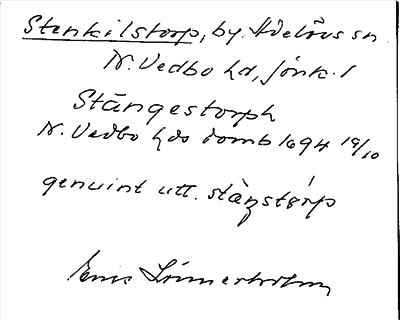 Stenkilstorp, by, Adelövs sn
N. Vedbo hd, Jönk. l
Stångestorph
N. Vedbo hds domb 1694 19/10
genuint utt. stàŋstórp